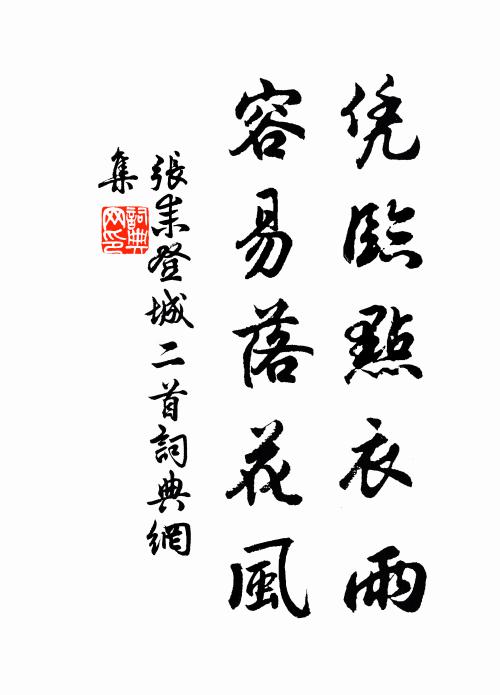 凭臨點衣雨
容易落花風
張耒登城二首詞典網
集
詞典
网印